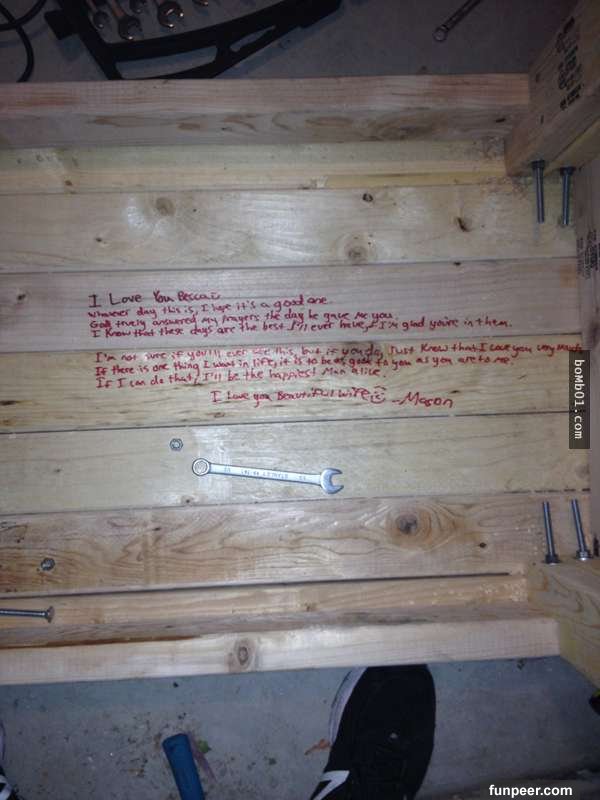 I Love You Becca
Whatever day this is, I hope it's a good one.
God truely answered my prayers the day he gave me you.
I Know that these days are the best I'll ever have, & I'm glad you're in them.
I'm not sure if you'll ever see this, but if you do, Just Know that I Love you very much.
If there is one thing I want in life, it is to be as good to you as you are to me.
If I can do that, I'll be the happiest Man alive.
I Love you Beautiful Wife -Mason
bomb01.com
funpeer.com